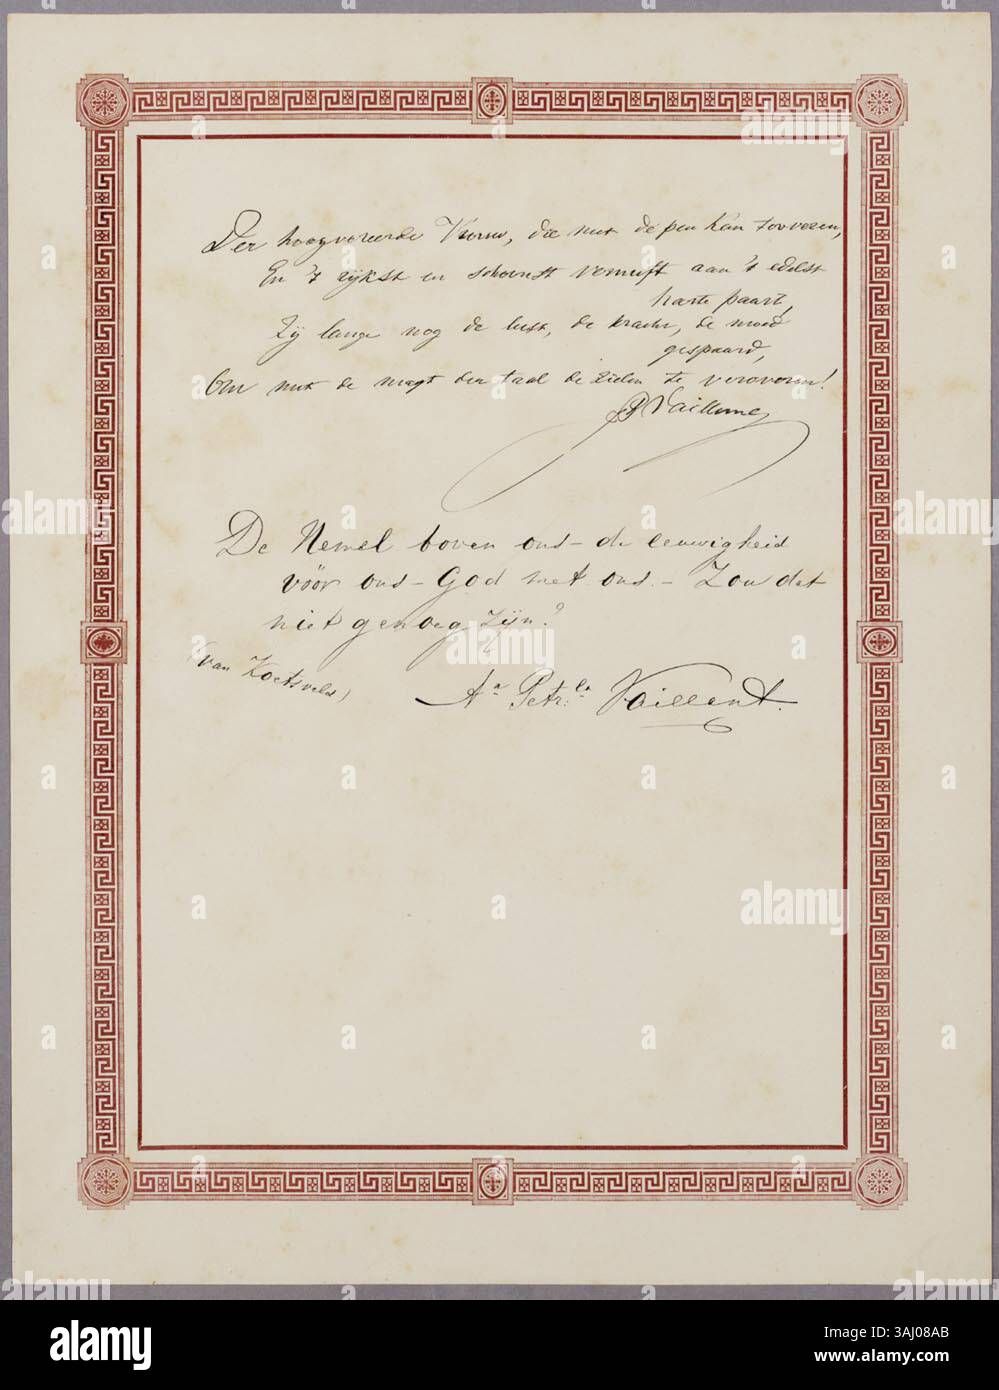 Der hoogvereerde Vrouw, die met de pen kan tooveren,
En 't rijkst en schoonst vernuft aan 't edelst
harte paart,
Zij lange nog de lust, de kracht, de moed
gespaard,
Om met de magt der taal de zielen te veroveren!
Vaillant
De Hemel boven ons – de eeuwigheid
vóór ons – God met ons. – Zou dat
niet genoeg zijn?
(van Koetsveld)
Aa Petr.la Vaillant.
alamy
alamy
Image ID: 3AJ08AB
www.alamy.com